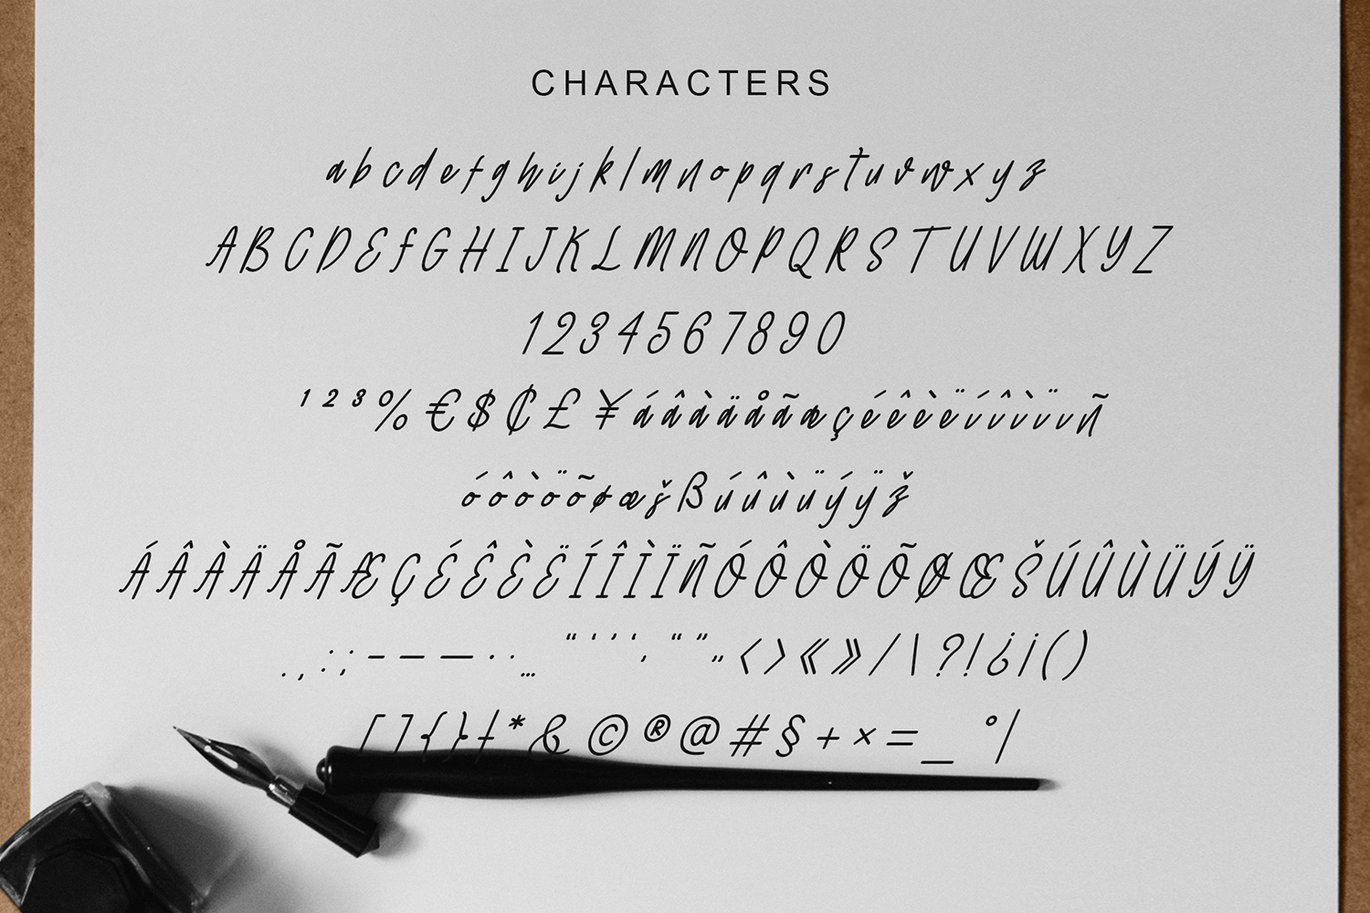 CHARACTERS
abcdefghijklmnopqrstuvwxyz
ABCDEFGHIJKLMNOPQRSTUVWXYZ
1234567890
¹ ² ³ % € $ ₵ £ ¥ á â à ä å ã æ ç é ê è ë í î ì ï ı Ñ
ó ô ò ö õ ø œ š ß ú û ù ü ý ÿ ž
Á Â À Ä Å Ã Æ Ç É Ê È Ë Í Î Ì Ï Ñ Ó Ô Ò Ö Õ Ø Œ Š Ú Û Ù Ü Ý Ÿ
. , : ; - – — · · … " ' ‘ ’ ‚ “ ” „ ‹ › « » / \ ? ! ¿ ¡ ( )
[ ] { } † * & © ® @ # § + × = _ ° |